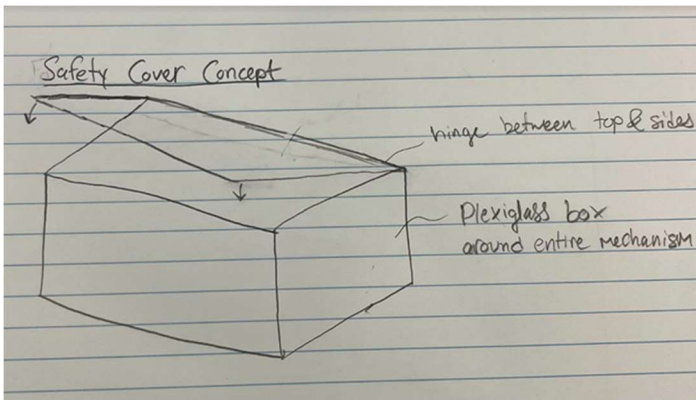 Safety Cover Concept
hinge between top & sides
Plexiglass box
around entire mechanism